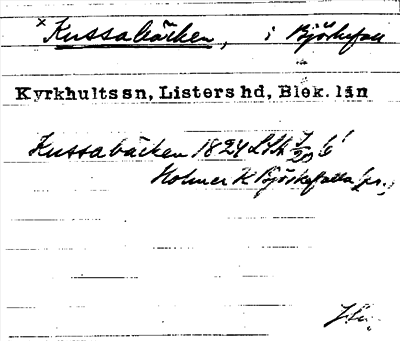 × Kussabäcken, i Björkefall
Kyrkhults sn, Listers hd, Blek. län
Kussabäcken 1824 LSA
Holmer K Björkefalla